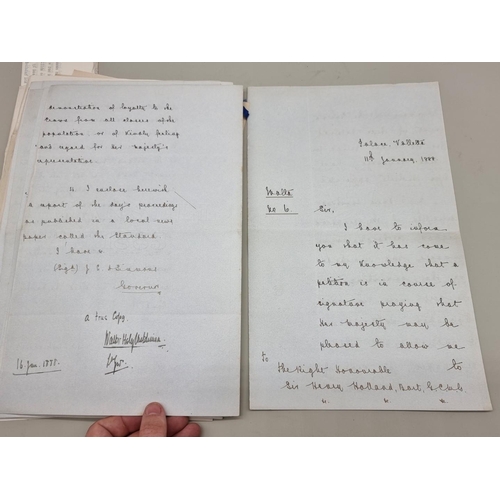 demonstration of loyalty to the
Crown from all classes of the
population or of kindly feeling
and regard for Her Majesty's
representative.
4. I enclose herewith
a report of the day's proceedings
as published in a local news
paper called the Standard.
I have &
(Sigd) J. L.
Governor
A true Copy.
Walter Hely-Hutchinson
Lt Govr.
16 Jan. 1888.
Palace, Valletta
11th January, 1888
Malta
No 6.
Sir,
I have to inform
you that it has come
to my knowledge that a
petition is in course of
signature praying that
Her Majesty may be
pleased to allow me
to
To
The Right Honourable
Sir Henry Holland, Bart, G.C.M.G